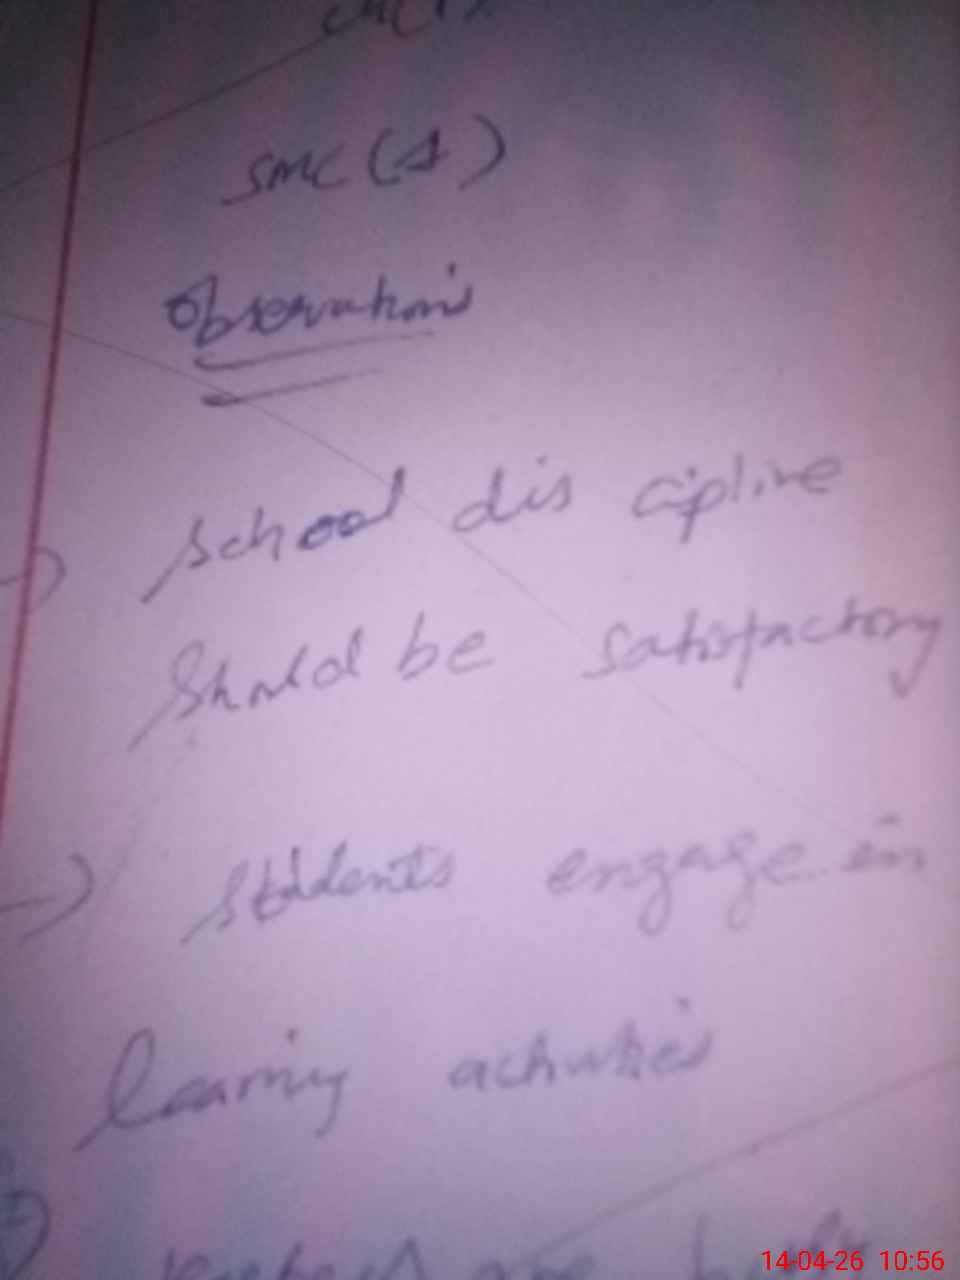 SMC (1)
Observations
→ School discipline
Should be satisfactory
→ Students engage in
learning activities
14-04-26 10:56